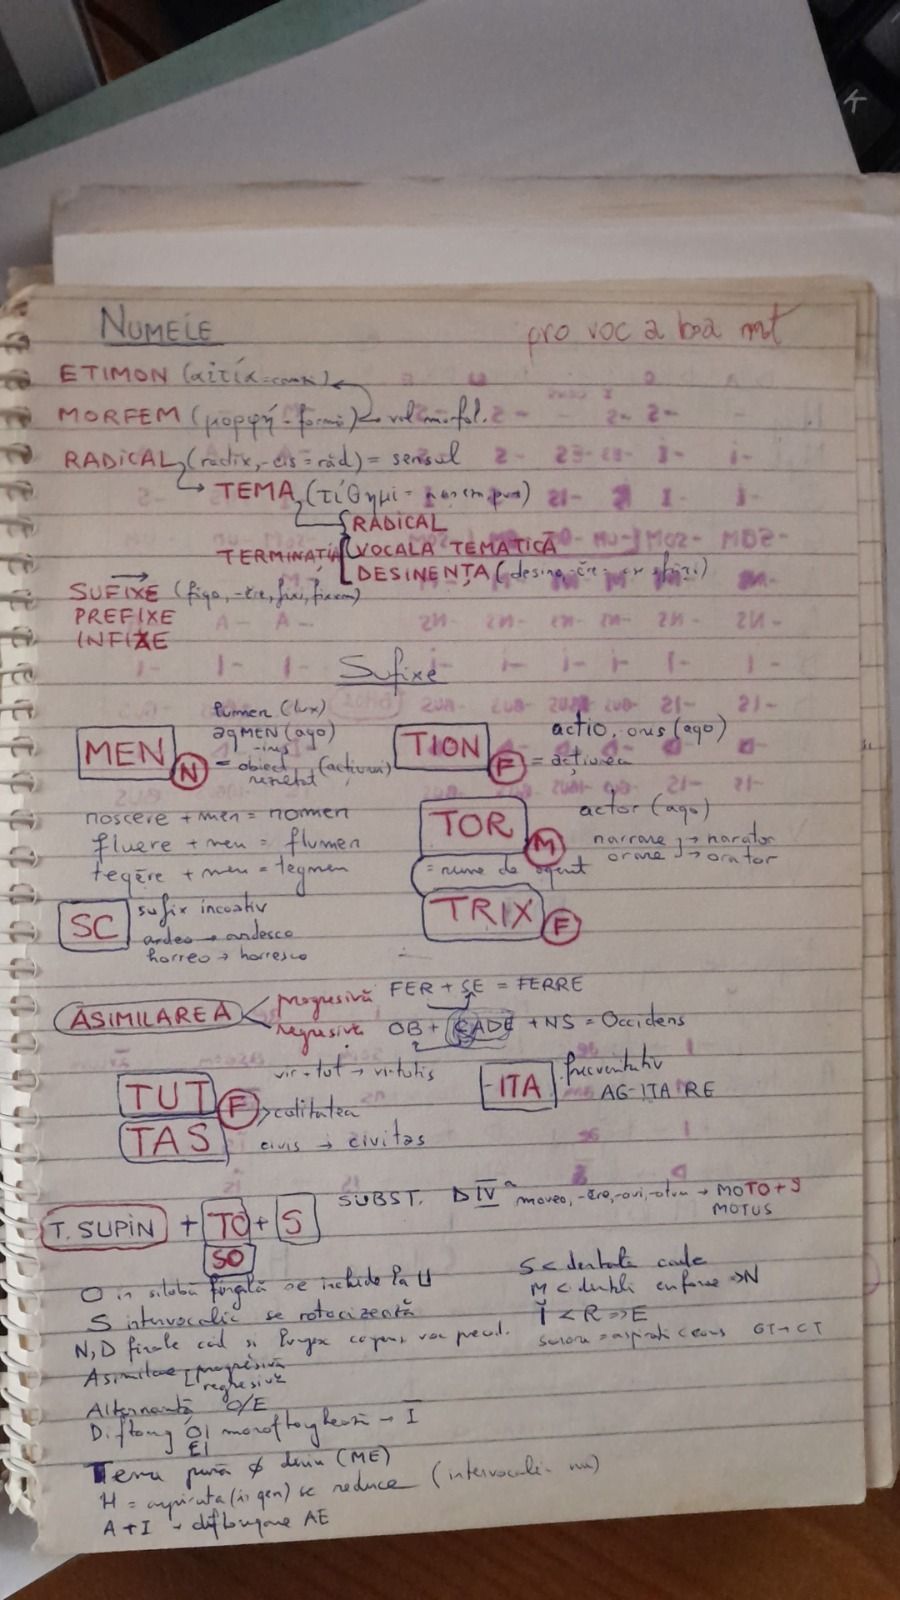 NUMELE
pro voc a boa
ETIMON (αἰτία =
MORFEM (μορφή - formă) morfol.
RADICAL (radix, -cis = răd) = sensul
TEMA (τίθημι =
RADICAL
TERMINAȚIA VOCALA TEMATICĂ
DESINENȚA (desino -ĕre =
SUFIXE (figo, -ĕre, fixi, fixum)
PREFIXE
INFIXE
Sufixe
MEN N
lumen (lux)
agMEN (ago)
-inis
= obiect (acțiunii)
rezultat
TION F
actio, onis (ago)
= acțiunea
noscere + men = nomen
fluere + men = flumen
tegĕre + men = tegmen
TOR M
actor (ago)
narrare → narator
orare → orator
= nume de agent
TRIX F
SC
sufix incoativ
ardeo → ardesco
horreo → horresco
ASIMILAREA
progresivă FER + SE = FERRE
regresivă OB + CADE + NS = Occidens
TUT F
TAS
vir + tut → virtutis
calitatea
civis → civitas
-ITA
frecventativ
AG-ITA RE
T. SUPIN + TO + S
SO
SUBST. D IV a moveo, -ēre, -ovi, -otum → MOTO + S
MOTUS
O în silabă finală se închide la U
S intervocalic se rotacizează
N, D finale cad și
Asimilare progresivă
regresivă
Alternanță O/E
Diftong OI monoftonghează → Ī
EI
Tema pură ∅ (ME)
H = aspirata (în gen) se reduce (intervocalic
A + I → diftongare AE
S < dentală cade
M < => N
Ĭ < R => E
GT → CT